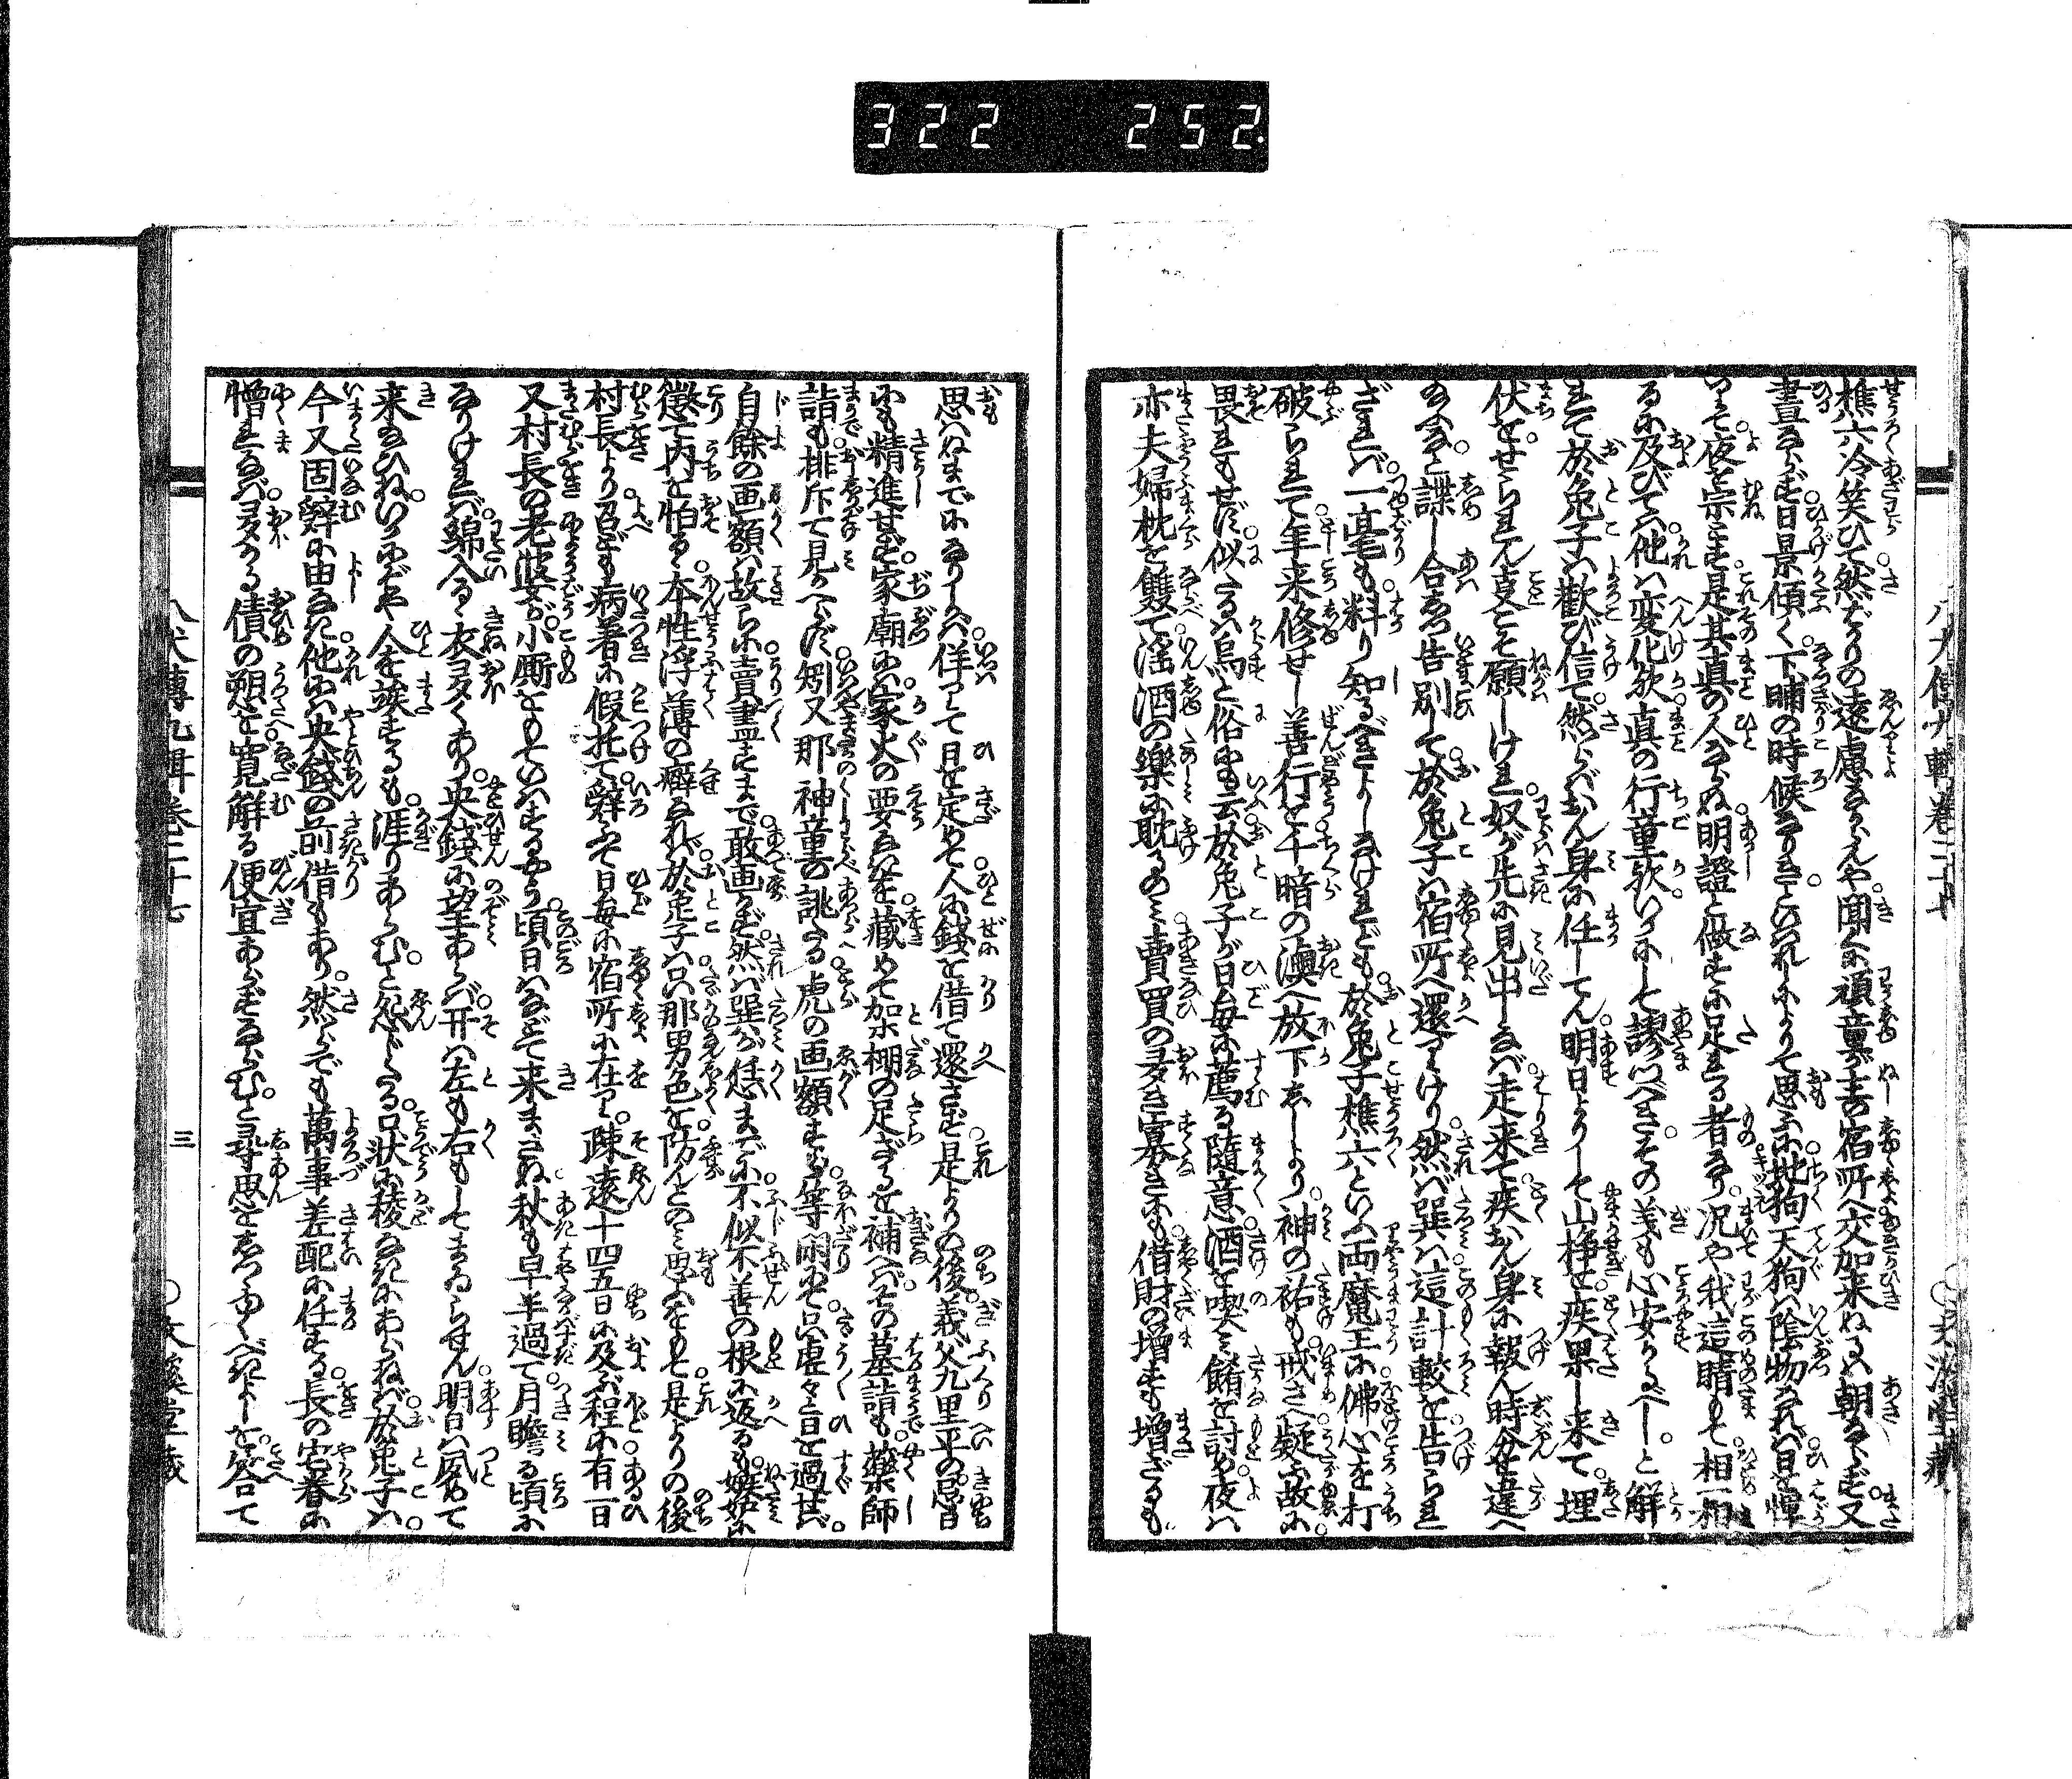 322 252
樵六冷笑ひて然ばかりの遠慮ならんや聞くに頑童が主の宿所へ交加来ぬるは朝ならず又
晝ならず日景傾く下晡の時候なりきといはれしによりて思ふに地狗天狗は陰物なれば日を憚
りて夜を宗とす是其真の人ならぬ明證と做すに足れる者なり況や我這睛もて相一相
るに及びては他は変化歟真の行童歟いかにして謬つべきその義も心安かるべしと解
れて於兎子は歓び信て然らばおん身に任してん明日よりして山挊を疾果し来て埋
伏をせられん事をこそ願しけれ奴が先に見出しなば走来て疾おん身に報ん時分を違へ
給ふなと諜し合しつ告別して於兎子は宿所へ還りけり然ば巽は這計較を告られ
ざれば一毫も料り知るべきよしなけれども於兎子樵六といふ両魔王に佛心を打
破られて年来修せし善行を千暗の澳へ放下しゝより神の祐も戒さへ疑ふ故に
畏れもせず似るは烏と俗にも云於兎子が日毎に薦る隨意酒を喫み餚を討め夜は
亦夫婦枕を雙て淫酒の樂に耽るのみ賣買の多き寡きにも借財の増すも増ざるも
八犬傳九輯巻二十七
思はぬまでになりしかば佯りて日を定めて人に錢を借て還さず是よりの後義父九里平の忌日
にも精進せず家廟には家火の要なきを藏めて架棚の足ざるを補へばその墓詣も藥師
詣も排斥て見かへらず矧又那神童の誂たる虎の画額すら等閑にして只虚々と日を過せば
自餘の画額は故らに賣盡すまで敢画かず然ば巽が恁まで不似不善の根に返るも嫉妬に
懲て内を怕るゝ本性浮薄の癖なれば於兎子は只那男色を防んとのみ思ふをもて是よりの後
村長より召ども病着に假托て辞ひて日毎に宿所に在り疎遠十四五日に及ぶ程に有一日
又村長の老婆が小厮をもていはするやう頃日はなどて来まさぬ秋も早半過て月瞻る頃に
なりければ綿入るゝ衣多くあり央錢に望あらば开は左も右もしてまゐらせん明日は夙めて
来給ひねいかにぞや人を族するも涯りあらむと怨じたる口状に稜なきにあらねば於兎子は
今又固辭に由なき他には央錢の前借もあり然らでも萬事差配に任する長の宅眷に
憎まれなば多かる債の愬を寛解る便宜あらずならむと尋思をしつゝ云云べきよしを答て
八犬傳九輯巻二十七
三
文溪堂藏